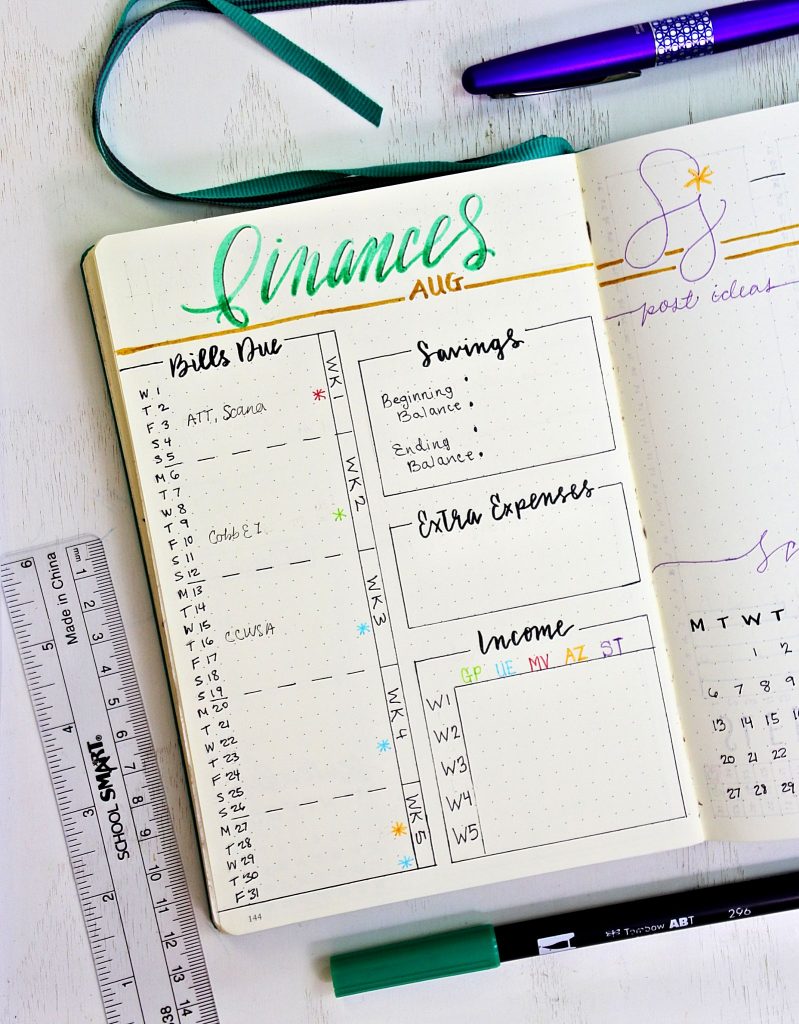 finances
AUG
Bills Due
W 1
T 2
F 3 ATT, Scana
S 4
S 5
M 6
T 7
W 8
T 9
F 10 Cobb EI
S 11
S 12
M 13
T 14
W 15
T 16 CCWSA
F 17
S 18
S 19
M 20
T 21
W 22
T 23
F 24
S 25
S 26
M 27
T 28
W 29
T 30
F 31
WK 1
WK 2
WK 3
WK 4
WK 5
Savings
Beginning
Balance
Ending
Balance
Extra Expenses
Income
GP UE MV AZ ST
W1
W2
W3
W4
W5
144
post ideas
M T W T
1 2
6 7 8 9
13 14 15 16
20 21 22
27 28 29
6 5 4 3 2 1
Made in China
SCHOOL SMART
mm 1 2 3 4 5 6 7 8 9 10 11 12 13 14
Tombow ABT 296